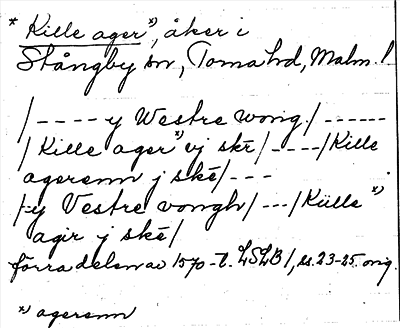 * Kille ager *), åker i
Stångby sn, Torna hd, Malm. l
/---- y Westre wong./ ------
/ Kille ager *) vj skē /----/ Kille
agerenn j skē /---
/-y Vestre vongh/---/ Külle *)
agir j skē/
förra delen av 1570-t. LSLB/, ss. 23-25. orig.
*) agerenn